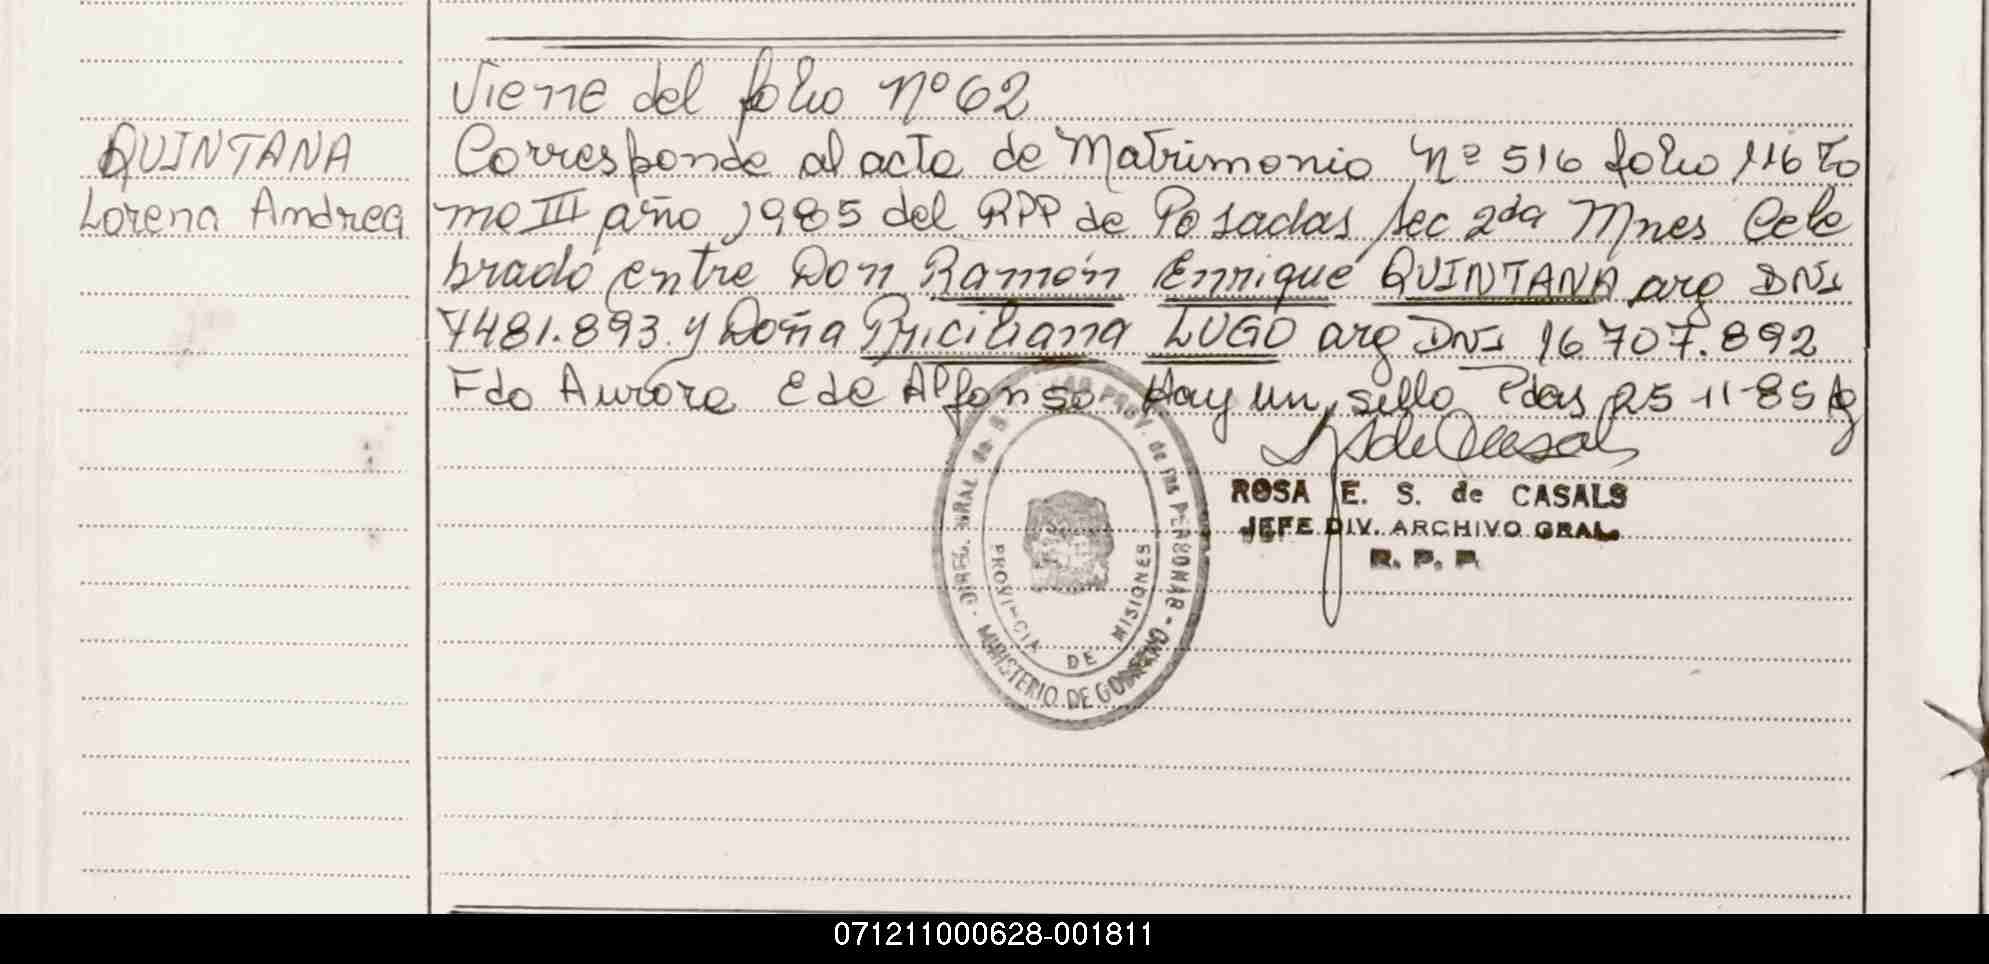 Viene del folio Nº 62
QUINTANA
Lorena Andrea
Corresponde al acta de Matrimonio Nº 516 folio 116 To
mo III año 1985 del RPP de Posadas Sec 2da Mnes Cele
brado entre Don Ramón Enrique QUINTANA arg DNI
7481.893 y Doña Priciliana LUGO arg DNI 16707.892
Fdo Aurora E de Alfonso Hay un sello Pdas 25-11-85
ROSA E. S. de CASALS
JEFE DIV. ARCHIVO GRAL.
R. P. P.
DIREC. GRAL de PROV. de las PERSONAS
MINISTERIO DE GOBIERNO
PROVINCIA DE MISIONES
071211000628-001811